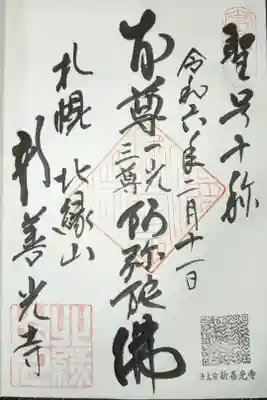 聖号十称
令和六年二月十一日
本尊一光三尊阿弥陀佛
札幌 北縁山
新善光寺
浄土宗新善光寺